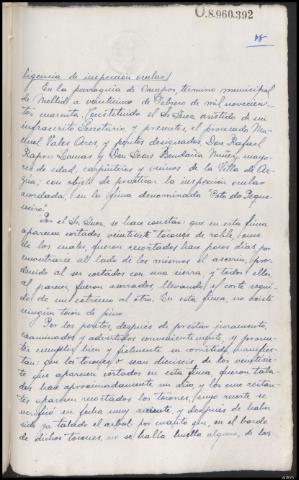 O.8.960.392
ligencia de inspección ocular/
En la parroquia de Campos, término municipal
de Mellid a veintinueve de Febrero de mil novecien-
tos cuarenta, Constituido el Sr. Juez asistido de mi
infrascrito Secretario, y presentes el procesado Ma-
nuel Vales y peritos designados Don Rafael
Rapón y Don mayo-
res de edad, carpinteros y vecinos de la Villa de Ar-
zúa, con objeto de practicar la inspección ocular
acordada, en la finca denominada
Por el Sr. Juez, se hace constar: que en esta finca
aparecen cortados veintisiete tocones de roble,
de los cuales fueron recortados hace pocos días por
encontrarse al lado de los mismos el aserrín, pro-
ducido al ser cortados con una sierra, y todos ellos
al parecer fueron aserrados llevando el corte segui-
do de un extremo al otro. En esta finca, no existe
ningún tocón de pino.
Por los peritos después de prestar juramento,
examinados y advertidos convenientemente, y prome-
ter cumplir bien y fielmente su cometido, manifies-
tan: que los tocones o sea dieciseis de los veintisie-
te que aparecen cortados en esta finca, fueron tala-
dos hace aproximadamente un año, y los once restan-
tes aparecen recortados los tocones, cuyo corte se
verificó en fecha muy reciente, y después de haber
sido ya talado el arbol por cuanto que, en el borde
de dichos tocones, no se halla huella alguna, de las